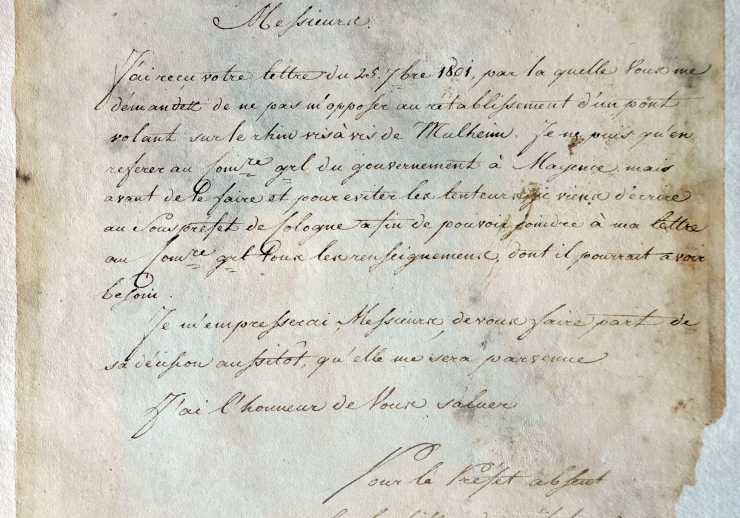 Messieurs.
J'ai reçu votre lettre du 25. 7bre 1801, par la quelle Vous me
demandez de ne pas m'opposer au retablissement d'un pont
volant sur le rhin vis à vis de Mulheim. Je ne puis qu'en
referer au Comre grl du gouvernement à Mayence, mais
avant de le faire et pour eviter les lenteurs je viens d'écrire
au Sousprefet de Cologne afin de pouvoir joindre à ma lettre
au Comre grl Tous les renseignemens, dont il pourrait avoir
besoin.
Je m'empresserai, Messieurs, de vous faire part de
sa décision aussitôt, qu'elle me sera parvenue
J'ai l'honneur de Vous saluer
Pour le Préfet absent